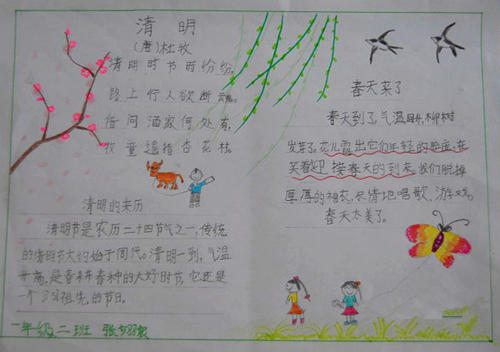 清明
(唐)杜牧
清明时节雨纷纷,
路上行人欲断魂。
借问酒家何处有,
牧童遥指杏花村。
清明的来历
清明节是农历二十四节气之一,传统
的清明节大约始于周代。清明一到,气温
升高,是春耕春种的大好时节,它还是
一个 祖先的节日。
一年级二班 张
春天来了
春天到了,气温 ,柳树
发芽了,花儿露出它们年轻的 ,在
笑着迎接春天的到来。我们脱掉
厚厚的棉衣,尽情地唱歌、游戏。
春天太美了。